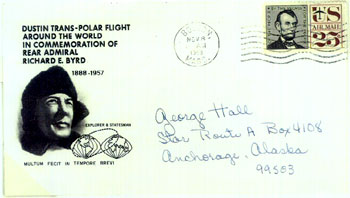 DUSTIN TRANS-POLAR FLIGHT
AROUND THE WORLD
IN COMMEMORATION OF
REAR ADMIRAL
RICHARD E. BYRD
1888-1957
EXPLORER & STATESMAN
MULTUM FECIT IN TEMPORE BREVI
BOSTON
MASS
US
25¢
George Hall
Star Route A Box 4108
Anchorage, Alaska
99503